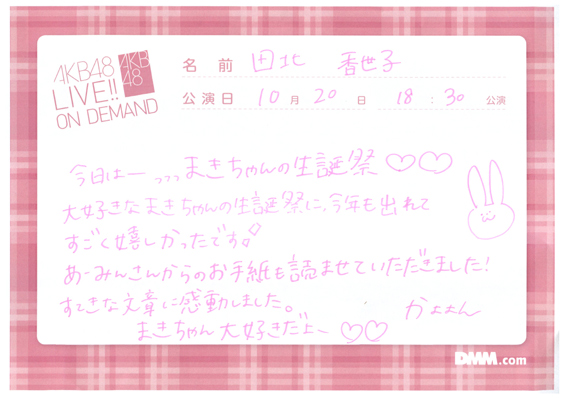 AKB48
LIVE!!
ON DEMAND
AKB
48
名前 田北 香世子
公演日 10月20日 18:30公演
今日はーっっっまきちゃんの生誕祭♡♡
大好きなまきちゃんの生誕祭に、今年も出れて
すごく嬉しかったです。
あーみんさんからのお手紙も読ませていただきました!
すてきな文章に感動しました。
かよよん
まきちゃん大好きだよー♡♡
DMM.com